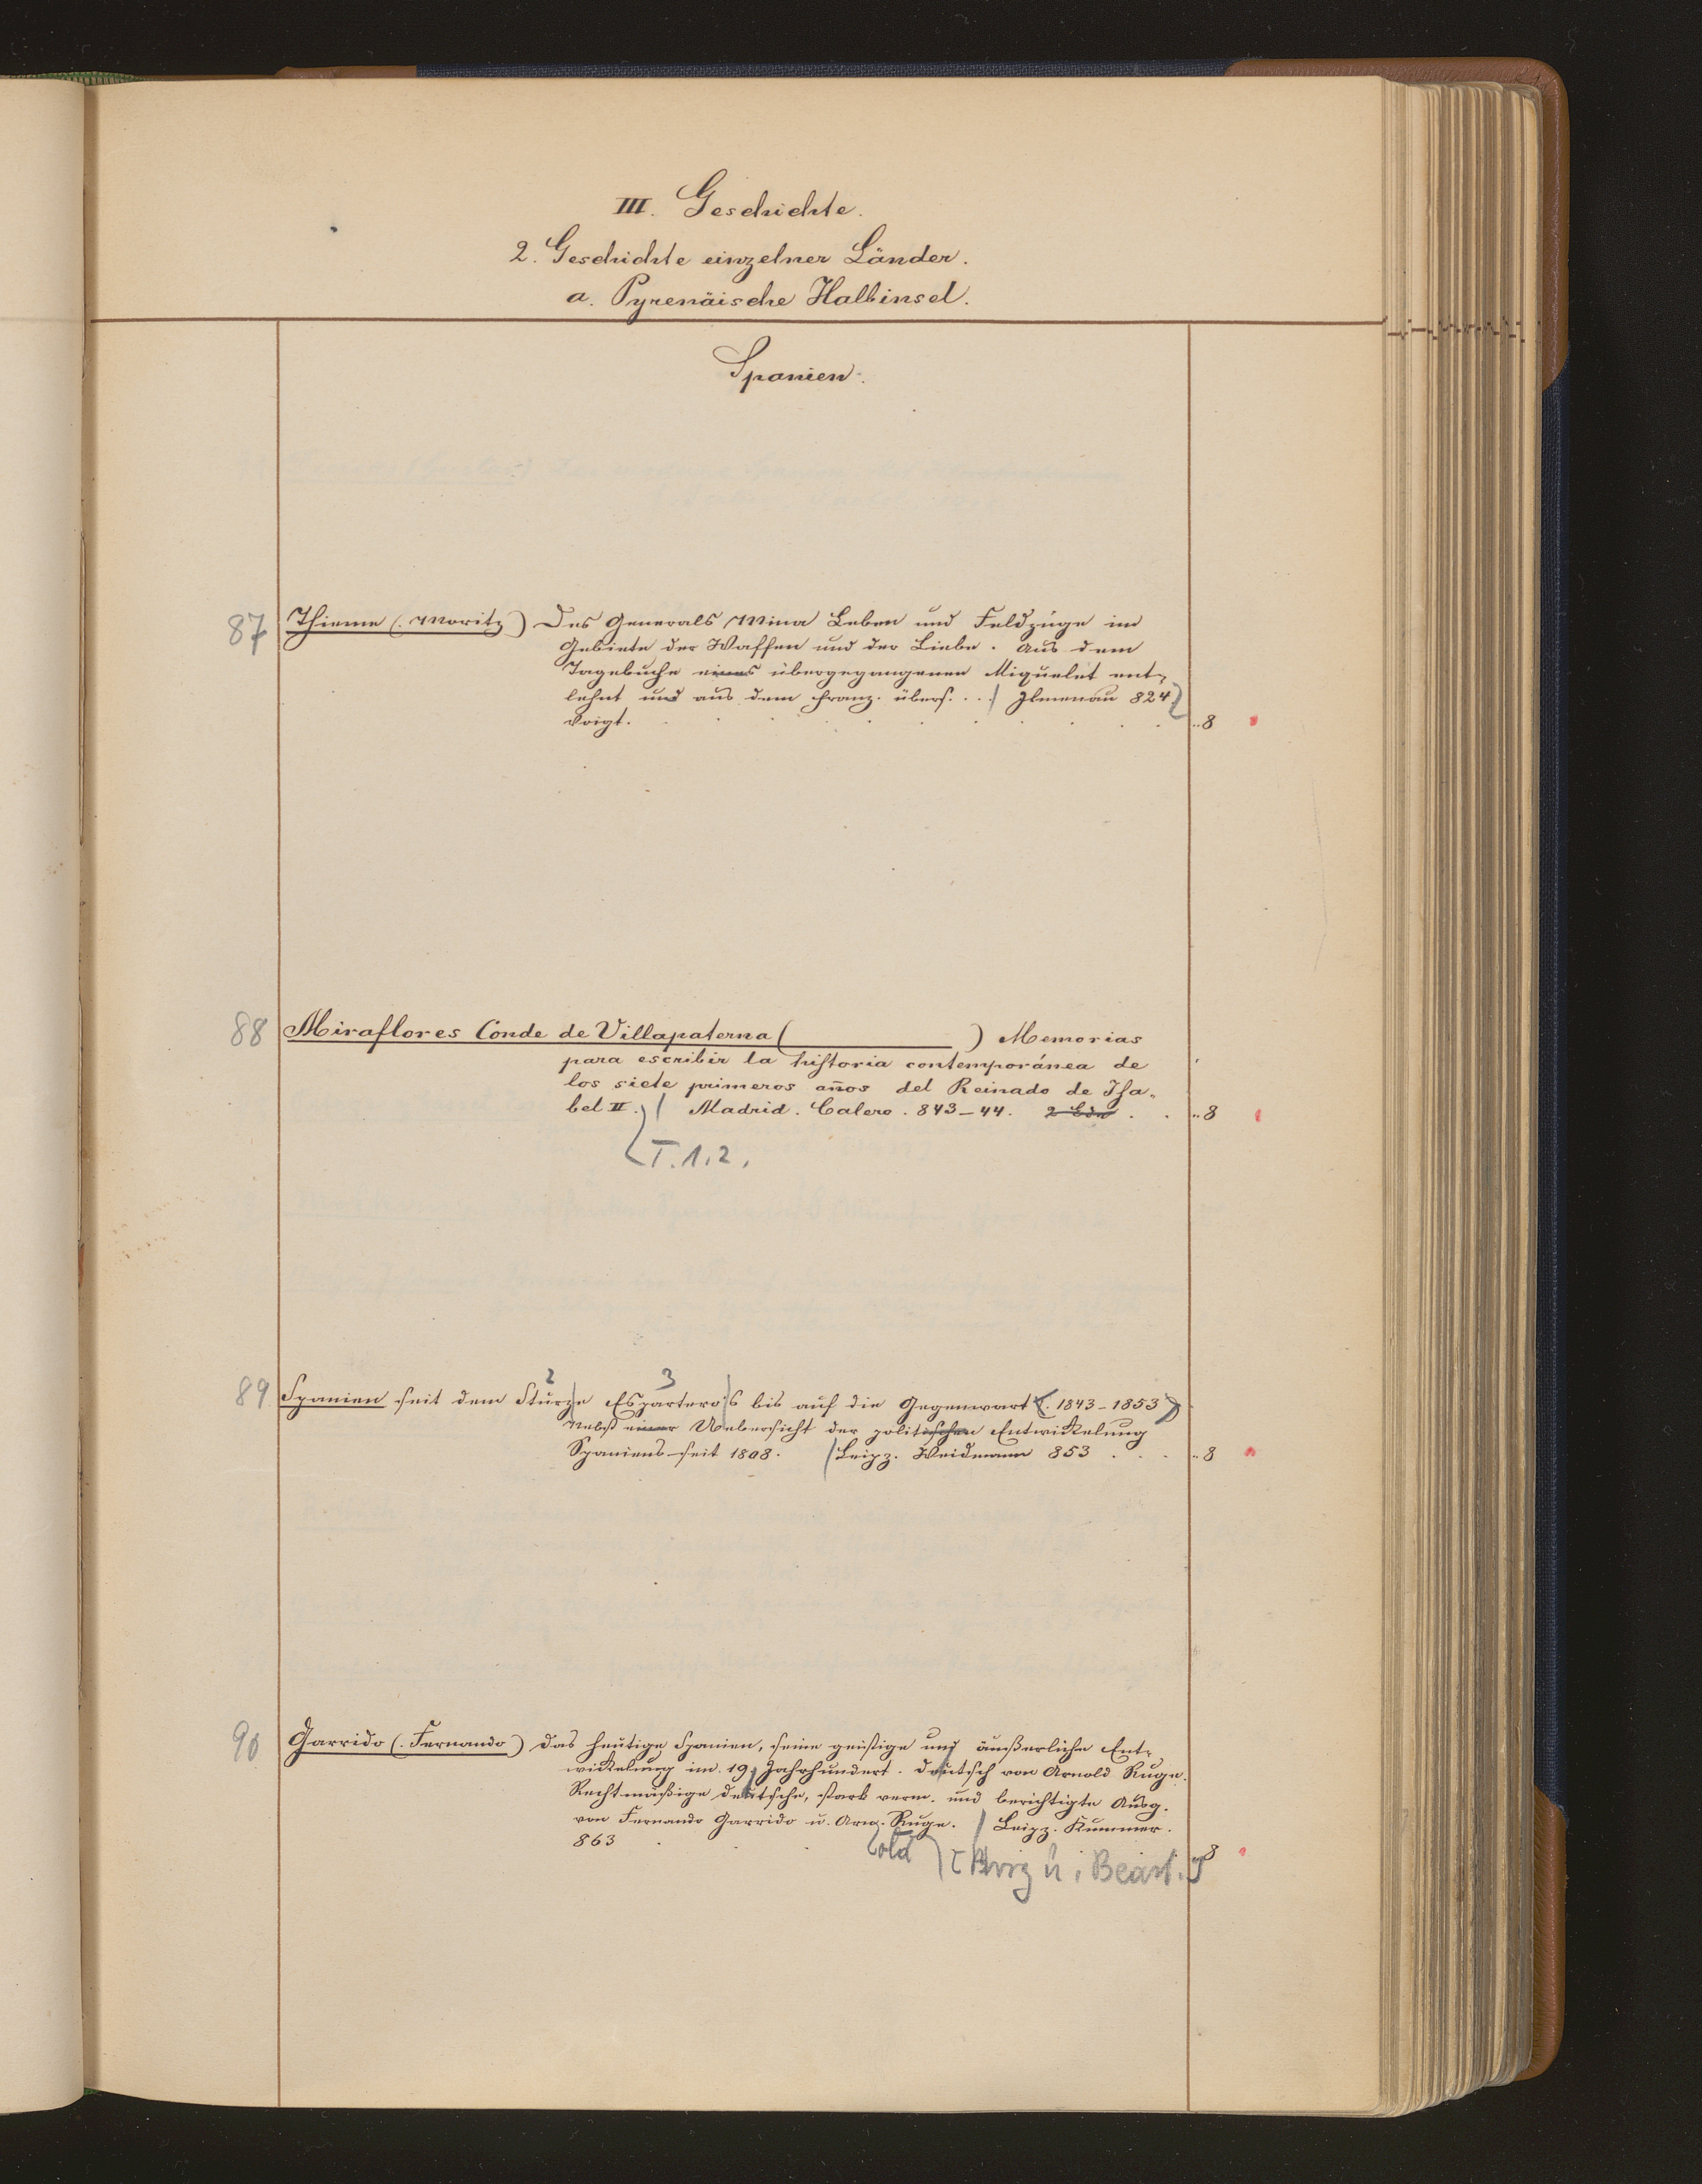 III. Geschichte.
2. Geschichte einzelner Länder.
a. Pyrenäische Halbinsel.
Spanien.
87 Thieme (Moritz) Des Generals Mina Leben und Feldzüge im
Gebiete der Waffen und der Liebe. Aus dem
Tagebuche eines übergegangenen Miquelet ent-
lehnt und aus dem Franz. übers. .. Ilmenau 824
Voigt. 8
88 Miraflores Conde de Villapaterna ( ) Memorias
para escribir la historia contemporánea de
los siete primeros años del Reinado de Isa-
bel II. Madrid. Calero. 843-44. 2 Bde. 8
T. 1.2.
2 3
89 Spanien seit dem Sturze Espartero's bis auf die Gegenwart (1843-1853)
Nebst einer Uebersicht der politischen Entwickelung
Spaniens seit 1808. Leipz. Weidmann 853 8
90 Garrido (Fernando) Das heutige Spanien, seine geistige und äußerliche Ent-
wickelung im 19. Jahrhundert. Deutsch von Arnold Ruge.
Rechtmäßige deutsche, stark verm. und berichtigte Ausg.
von Fernando Garrido u. Arn. Ruge. Leipz. Kummer.
863 8
old